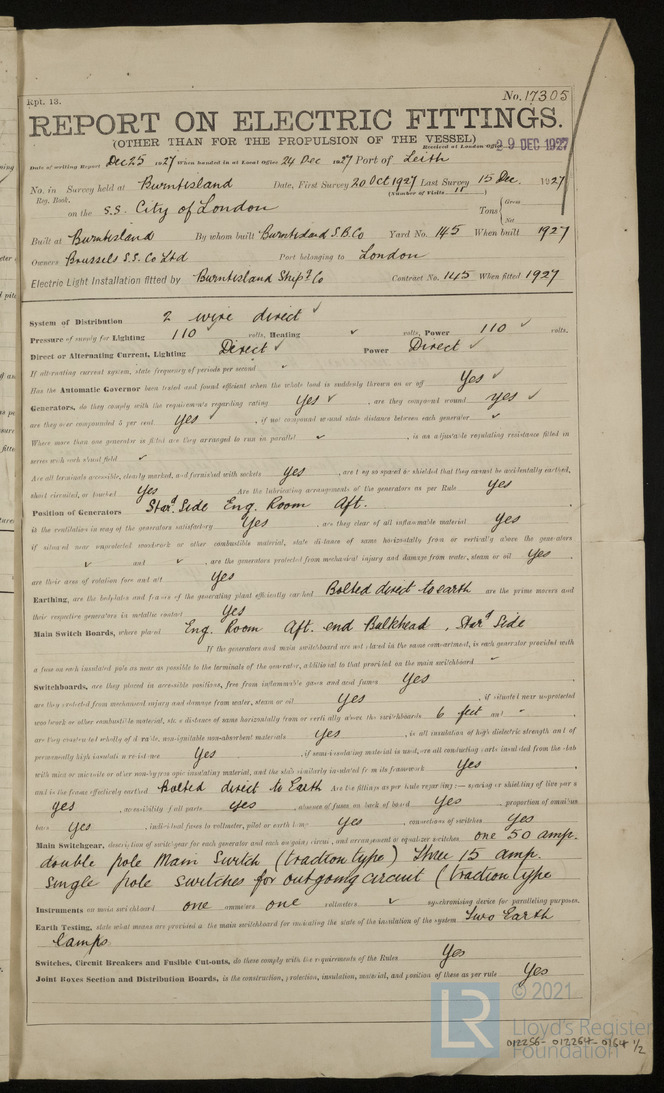 Rpt. 13.
No. 17305
REPORT ON ELECTRIC FITTINGS.
(OTHER THAN FOR THE PROPULSION OF THE VESSEL)
Received at London Office 29 DEC 1927
Date of writing Report Dec 25 1927 When handed in at Local Office 24 Dec 1927 Port of Leith
No. in Survey held at Burntisland Date, First Survey 20 Oct 1927 Last Survey 15 Dec. 1927
Reg. Book. (Number of Visits 11 )
on the S.S. City of London Tons { Gross Net
Built at Burntisland By whom built Burntisland S.B. Co Yard No. 145 When built 1927
Owners Brussels S.S. Co Ltd Port belonging to London
Electric Light Installation fitted by Burntisland Ship.g Co Contract No. 145 When fitted 1927
System of Distribution 2 wire direct ✓
Pressure of supply for Lighting 110 ✓ volts, Heating ✓ volts, Power 110 ✓ volts.
Direct or Alternating Current, Lighting Direct ✓ Power Direct ✓
If alternating current system, state frequency of periods per second ✓
Has the Automatic Governor been tested and found efficient when the whole load is suddenly thrown on or off Yes ✓
Generators, do they comply with the requirements regarding rating Yes ✓ , are they compound wound yes ✓
are they over compounded 5 per cent yes ✓ , if not compound wound state distance between each generator ✓
Where more than one generator is fitted are they arranged to run in parallel ✓ , is an adjustable regulating resistance fitted in
series with each shunt field ✓
Are all terminals accessible, clearly marked, and furnished with sockets yes , are they so spaced or shielded that they cannot be accidentally earthed,
short circuited, or touched yes Are the lubricating arrangements of the generators as per Rule yes
Position of Generators Star.d Side Eng. Room Aft.
is the ventilation in way of the generators satisfactory Yes , are they clear of all inflammable material yes
if situated near unprotected woodwork or other combustible material, state distance of same horizontally from or vertically above the generators
✓ and ✓ , are the generators protected from mechanical injury and damage from water, steam or oil yes
are their axes of rotation fore and aft yes
Earthing, are the bedplates and frames of the generating plant efficiently earthed Bolted direct to earth are the prime movers and
their respective generators in metallic contact yes
Main Switch Boards, where placed Eng. Room Aft. end Bulkhead, Star.d Side
If the generators and main switchboard are not placed in the same compartment, is each generator provided with
a fuse on each insulated pole as near as possible to the terminals of the generator, additional to that provided on the main switchboard ✓
Switchboards, are they placed in accessible positions, free from inflammable gases and acid fumes Yes
are they protected from mechanical injury and damage from water, steam or oil Yes , if situated near unprotected
woodwork or other combustible material, state distance of same horizontally from or vertically above the switchboards 6 feet and
are they constructed wholly of durable, non-ignitable non-absorbent materials Yes , is all insulation of high dielectric strength and of
permanently high insulation resistance Yes , if semi-insulating material is used, are all conducting parts insulated from the slab
with mica or micanite or other non-hygroscopic insulating material, and the slab similarly insulated from its framework Yes
and is the frame effectively earthed Bolted direct to Earth Are the fittings as per Rule regarding:— spacing or shielding of live parts
yes , accessibility of all parts yes , absence of fuses on back of board Yes , proportion of omnibus
bars Yes , individual fuses to voltmeter, pilot or earth lamp Yes , connections of switches Yes
Main Switchgear, description of switchgear for each generator and each outgoing circuit, and arrangement of equalizer switches one 50 amp.
double pole Main Switch (traction type) three 15 amp.
single pole switches for outgoing circuit (traction type
Instruments on main switchboard one ammeters one voltmeters ✓ synchronising device for paralleling purposes.
Earth Testing, state what means are provided at the main switchboard for indicating the state of the insulation of the system Two Earth
lamps
Switches, Circuit Breakers and Fusible Cut-outs, do these comply with the requirements of the Rules Yes
Joint Boxes Section and Distribution Boards, is the construction, protection, insulation, material, and position of these as per rule Yes
LR © 2021
Lloyd's Register
Foundation
012256-012264-0154 1/2